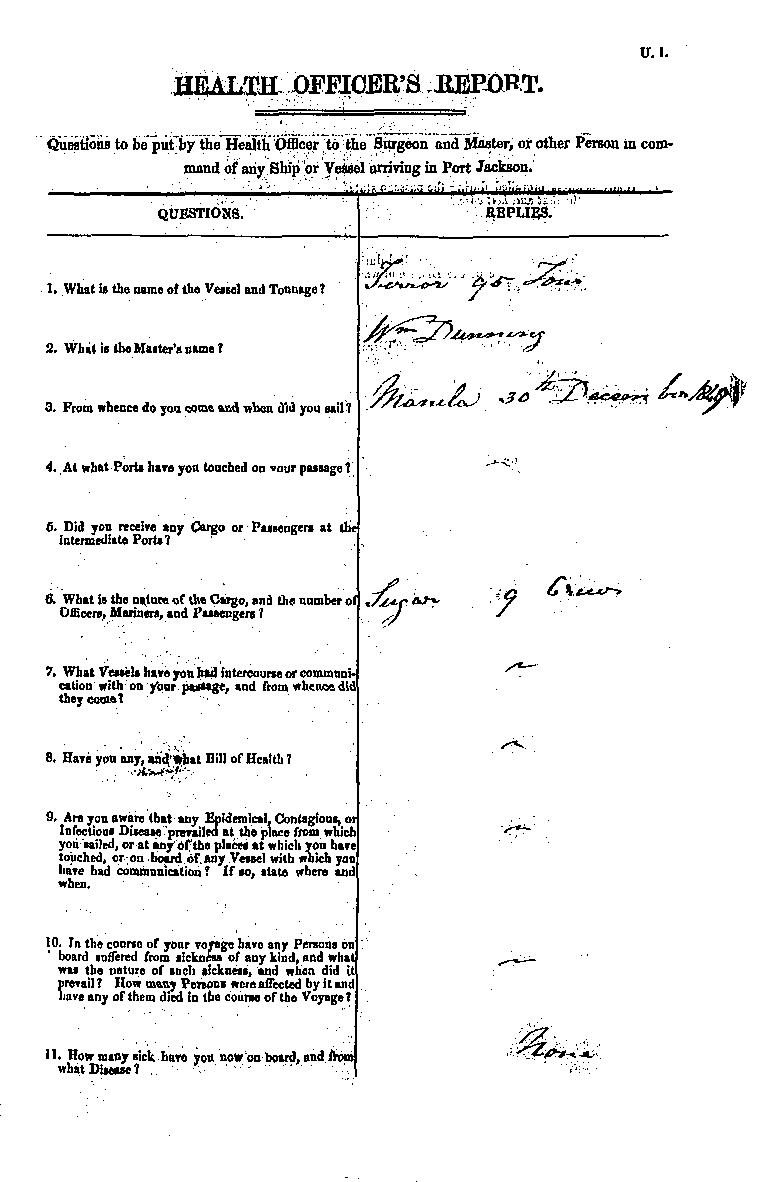 U. 1.
HEALTH OFFICER'S REPORT.
Questions to be put by the Health Officer to the Surgeon and Master, or other Person in com-
mand of any Ship or Vessel arriving in Port Jackson.
QUESTIONS. REPLIES.
1. What is the name of the Vessel and Tonnage? Terror 95 Tons
2. What is the Master's name? Wm Dunning
3. From whence do you come and when did you sail? Manila 30th December 1849
4. At what Ports have you touched on your passage? ~
5. Did you receive any Cargo or Passengers at the
intermediate Ports?
6. What is the nature of the Cargo, and the number of Sugar 9 Crew
Officers, Mariners, and Passengers?
7. What Vessels have you had intercourse or communi- ~
cation with on your passage, and from whence did
they come?
8. Have you any, and what Bill of Health? ~
9. Are you aware that any Epidemical, Contagious, or
Infectious Disease prevailed at the place from which ~
you sailed, or at any of the places at which you have
touched, or on board of any Vessel with which you
have had communication? If so, state where and
when.
10. In the course of your voyage have any Persons on
board suffered from sickness of any kind, and what ~
was the nature of such sickness, and when did it
prevail? How many Persons were affected by it and
have any of them died in the course of the Voyage?
11. How many sick have you now on board, and from None
what Disease?